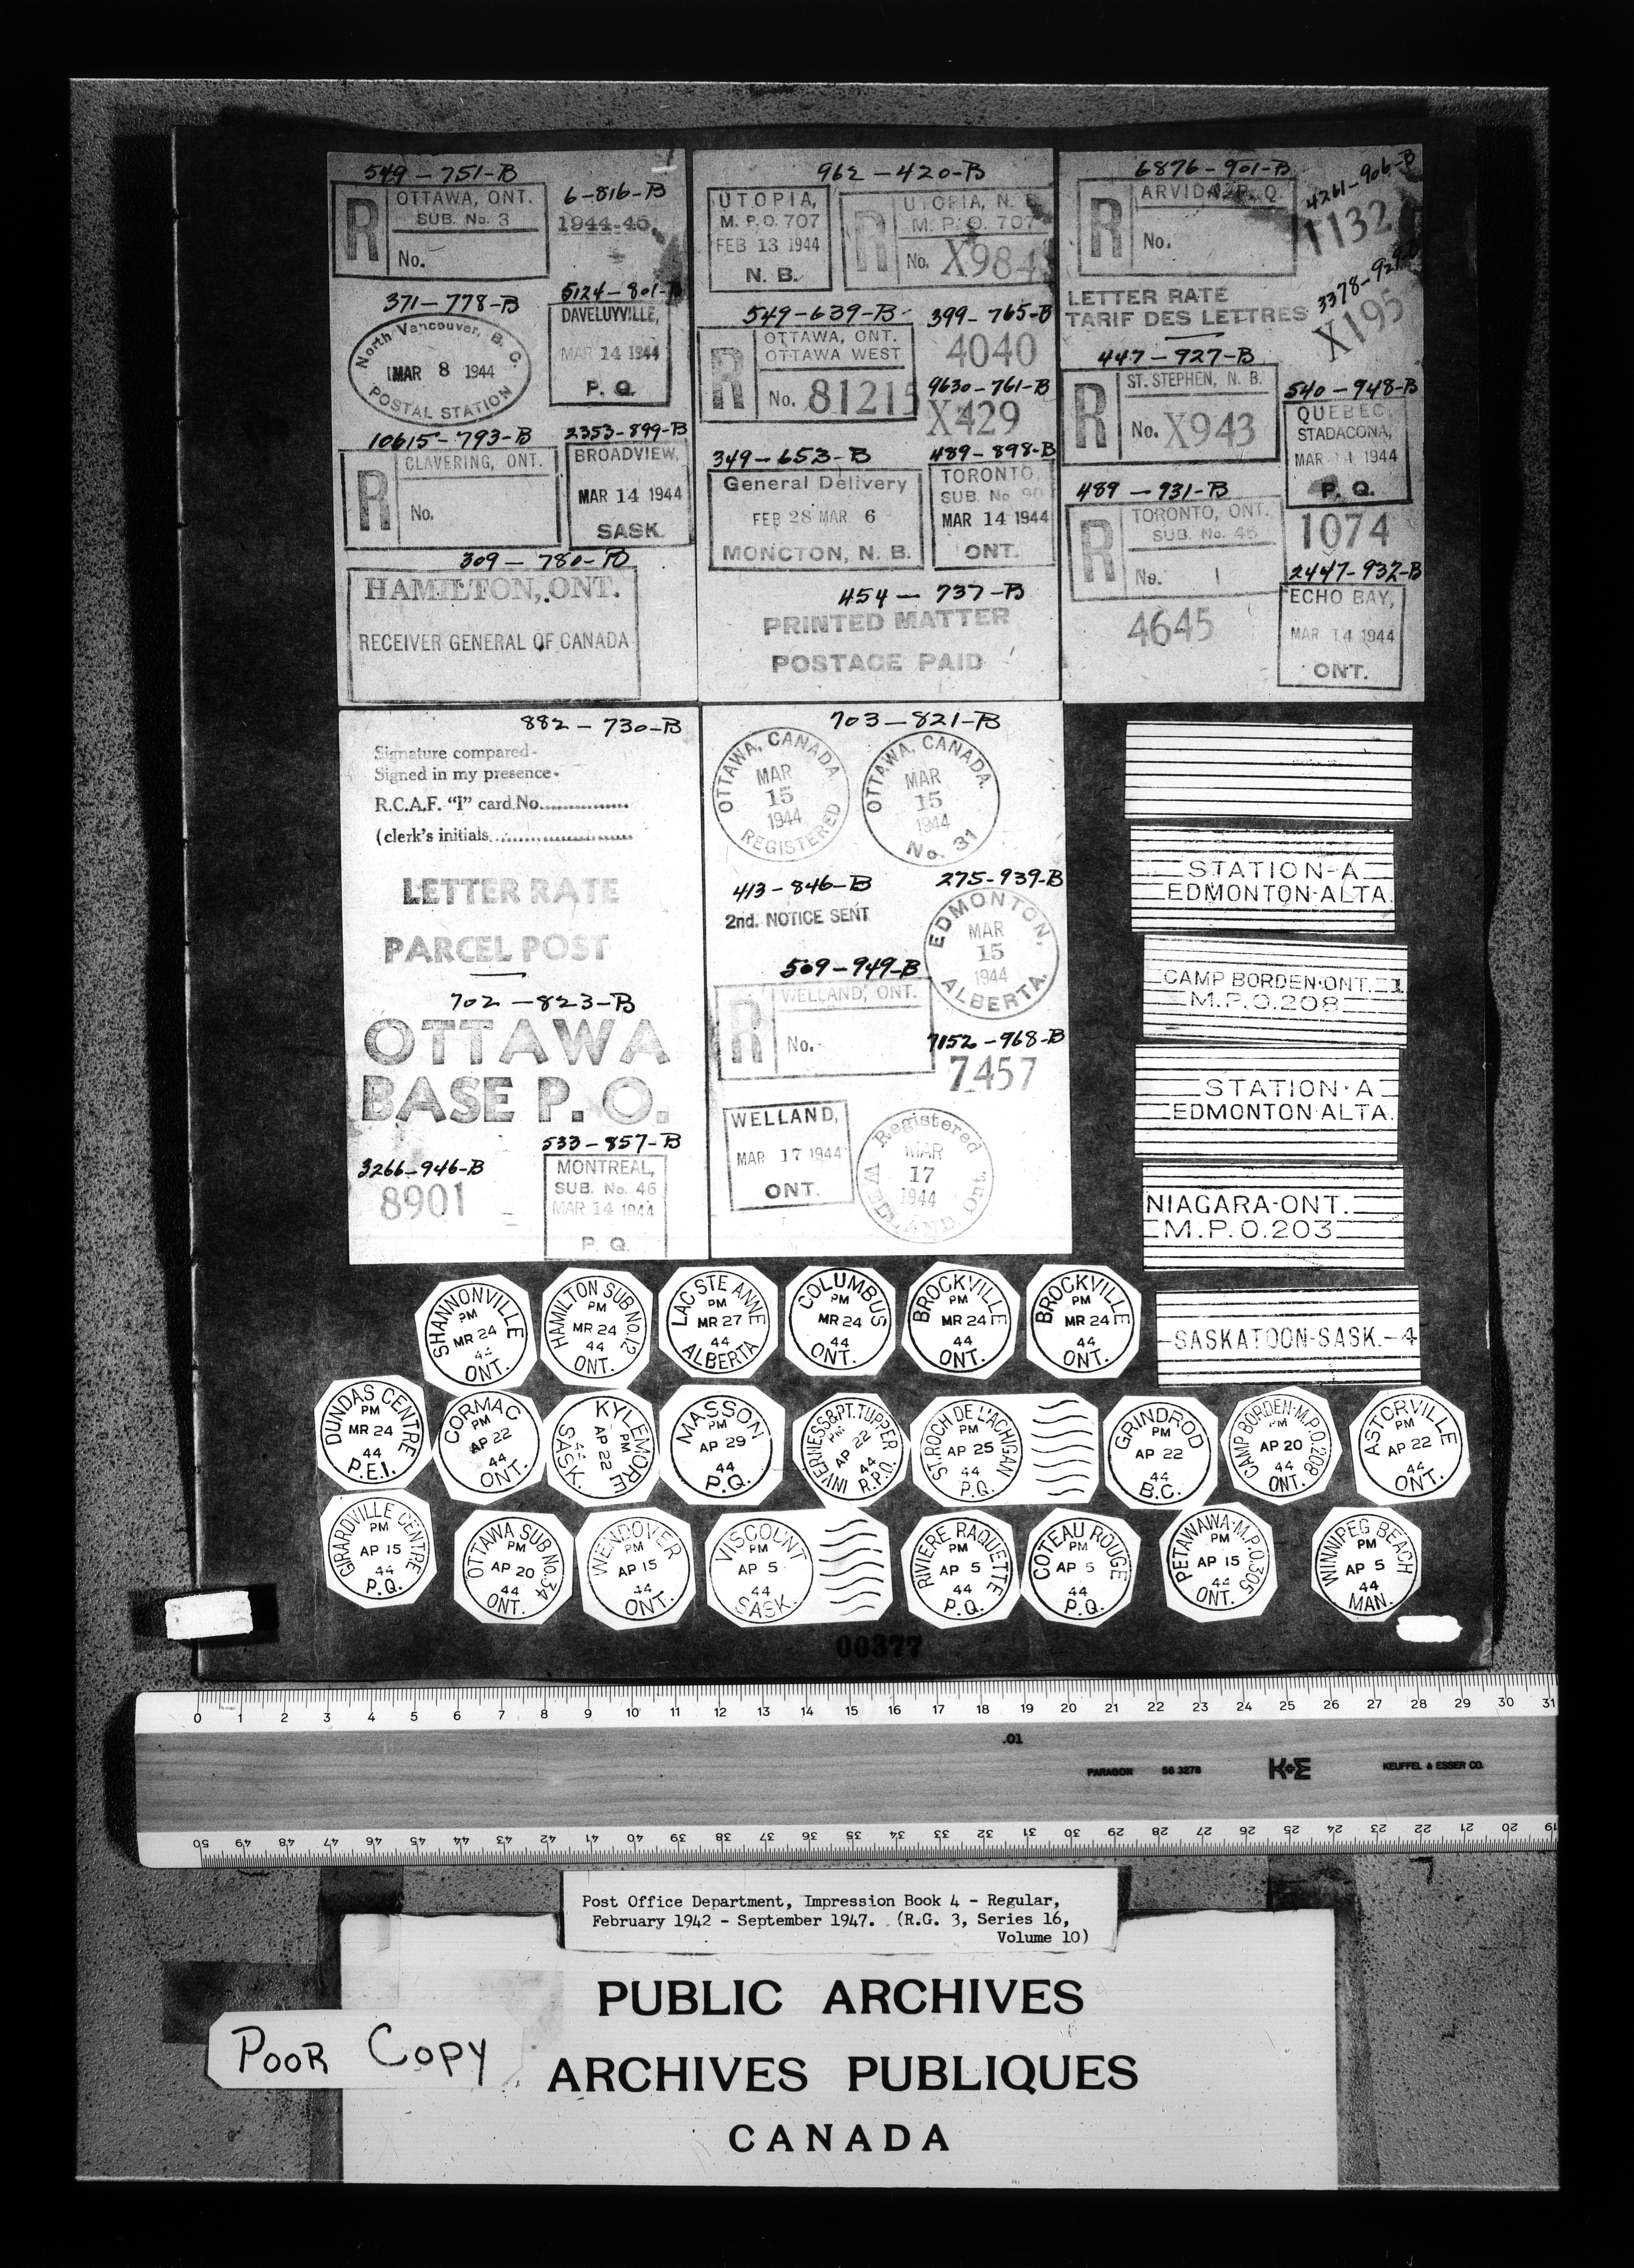 549-751-B
OTTAWA, ONT.
SUB. No. 3
R
No.
6-816-B
1944-45
371-778-B
North Vancouver, B. C.
MAR 8 1944
POSTAL STATION
5124-801-B
DAVELUYVILLE,
MAR 14 1944
P. Q.
10615-793-B
CLAVERING, ONT.
R
No.
2353-899-B
BROADVIEW,
MAR 14 1944
SASK.
309-780-B
HAMILTON, ONT.
RECEIVER GENERAL OF CANADA
962-420-B
UTOPIA,
M. P. O. 707
FEB 13 1944
N. B.
UTOPIA, N. B.
M. P. O. 707
R
No. X984
549-639-B
OTTAWA, ONT.
OTTAWA WEST
R
No. 81215
399-765-B
4040
9630-761-B
X429
349-653-B
General Delivery
FEB 28 MAR 6
MONCTON, N. B.
489-898-B
TORONTO,
SUB. No 90
MAR 14 1944
ONT.
454-737-B
PRINTED MATTER
POSTAGE PAID
6876-901-B
ARVIDA, P. Q.
R
No.
4261-906-B
1132
LETTER RATE
TARIF DES LETTRES
X195
447-927-B
ST. STEPHEN, N. B.
R
No. X943
540-948-B
QUEBEC,
STADACONA,
MAR 14 1944
P. Q.
489-931-B
TORONTO, ONT.
SUB. No. 46
R
No.
1074
4645
2447-932-B
ECHO BAY,
MAR 14 1944
ONT.
882-730-B
Signature compared-
Signed in my presence-
R.C.A.F. "I" card No...............
(clerk's initials.........................
LETTER RATE
PARCEL POST
702-823-B
OTTAWA
BASE P. O.
3266-946-B
8901
533-857-B
MONTREAL,
SUB. No. 46
MAR 14 1944
P. Q.
703-821-B
OTTAWA, CANADA
MAR
15
1944
REGISTERED
OTTAWA, CANADA.
MAR
15
1944
No. 31
413-846-B
2nd. NOTICE SENT
275-939-B
EDMONTON,
MAR
15
1944
ALBERTA.
509-949-B
WELLAND, ONT.
R
No.
7152-968-B
7457
WELLAND,
MAR 17 1944
ONT.
Registered
MAR
17
1944
WELLAND, Ont.
STATION-A
EDMONTON-ALTA.
CAMP BORDEN-ONT. 1
M.P.O.208
STATION·A
EDMONTON·ALTA.
NIAGARA-ONT.
M.P.O.203
SASKATOON-SASK.-4
SHANNONVILLE
PM
MR 24
44
ONT.
HAMILTON SUB No.12
PM
MR 24
44
ONT.
LAC STE ANNE
PM
MR 27
44
ALBERTA
COLUMBUS
PM
MR 24
44
ONT.
BROCKVILLE
PM
MR 24
44
ONT.
BROCKVILLE
PM
MR 24
44
ONT.
DUNDAS CENTRE
PM
MR 24
44
P.E.I.
CORMAC
PM
AP 22
44
ONT.
KYLEMORE
PM
AP 22
44
SASK.
MASSON
PM
AP 29
44
P.Q.
INVERNESS&PT.TUPPER
PM
AP 22
44
R.P.O.
ST.ROCH DE L'ACHIGAN
PM
AP 25
44
P.Q.
GRINDROD
PM
AP 22
44
B.C.
CAMP BORDEN-M.P.O.208
PM
AP 20
44
ONT.
ASTORVILLE
PM
AP 22
44
ONT.
GIRARDVILLE CENTRE
PM
AP 15
44
P.Q.
OTTAWA SUB No.34
PM
AP 20
44
ONT.
WENDOVER
PM
AP 15
44
ONT.
VISCOUNT
PM
AP 5
44
SASK.
RIVIERE RAQUETTE
PM
AP 5
44
P.Q.
COTEAU ROUGE
PM
AP 5
44
P.Q.
PETAWAWA-M.P.O.305
PM
AP 15
44
ONT.
WINNIPEG BEACH
PM
AP 5
44
MAN.
00377
0 1 2 3 4 5 6 7 8 9 10 11 12 13 14 15 16 17 18 19 20 21 22 23 24 25 26 27 28 29 30 31
.01
PARAGON 56 3278 K+E KEUFFEL & ESSER CO.
50 49 48 47 46 45 44 43 42 41 40 39 38 37 36 35 34 33 32 31 30 29 28 27 26 25 24 23 22 21 20 19
Post Office Department, Impression Book 4 - Regular,
February 1942 - September 1947. (R.G. 3, Series 16,
Volume 10)
PUBLIC ARCHIVES
ARCHIVES PUBLIQUES
CANADA
POOR COPY